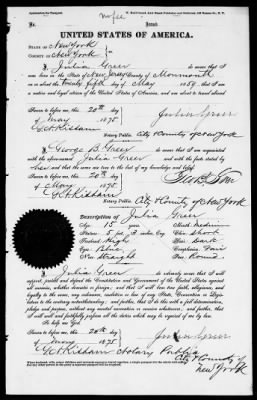 No fee
Issued
UNITED STATES OF AMERICA.
STATE OF New York
COUNTY OF New York
I, Julia Greer do swear that I
was born in the State of New Jersey County of Monmouth
on the Twenty fifth day of May 1859; that I am
a native and loyal citizen of the United States of America, and am about to travel
Sworn to before me, this 20th day
of May 1875
Julia Greer
Notary Public City & County of New York
I George B. Greer do swear that I am
acquainted with the aforenamed Julia Greer and with the facts stated by
her and that the same are true to the best of my knowledge and belief.
Sworn to before me, this 20th day
of May 1875
Notary Public City & County of New York
Description of Julia Greer
Age: 15 years Mouth: Medium
Stature: 5 feet 3 inches, Eng. Chin: Short
Forehead: High Hair: Dark
Eyes: Blue Complexion: Fair
Nose: Straight Face: Round
I, Julia Greer do solemnly swear that I will
support, protect and defend the Constitution and Government of the United States against
all enemies, whether domestic or foreign; and that I will bear true faith, allegiance, and
loyalty to the same, any ordinance, resolution or law of any State, Convention or Legis-
lature to the contrary notwithstanding; and further, that I do this with a full determination,
pledge and purpose, without any mental reservation or evasion whatsoever; and further,
that I will well and faithfully perform all the duties which may be required of me by law.
So help me God.
Sworn to before me, this 20th day
of May 1875
Julia Greer
Notary Public
City & County of
New York